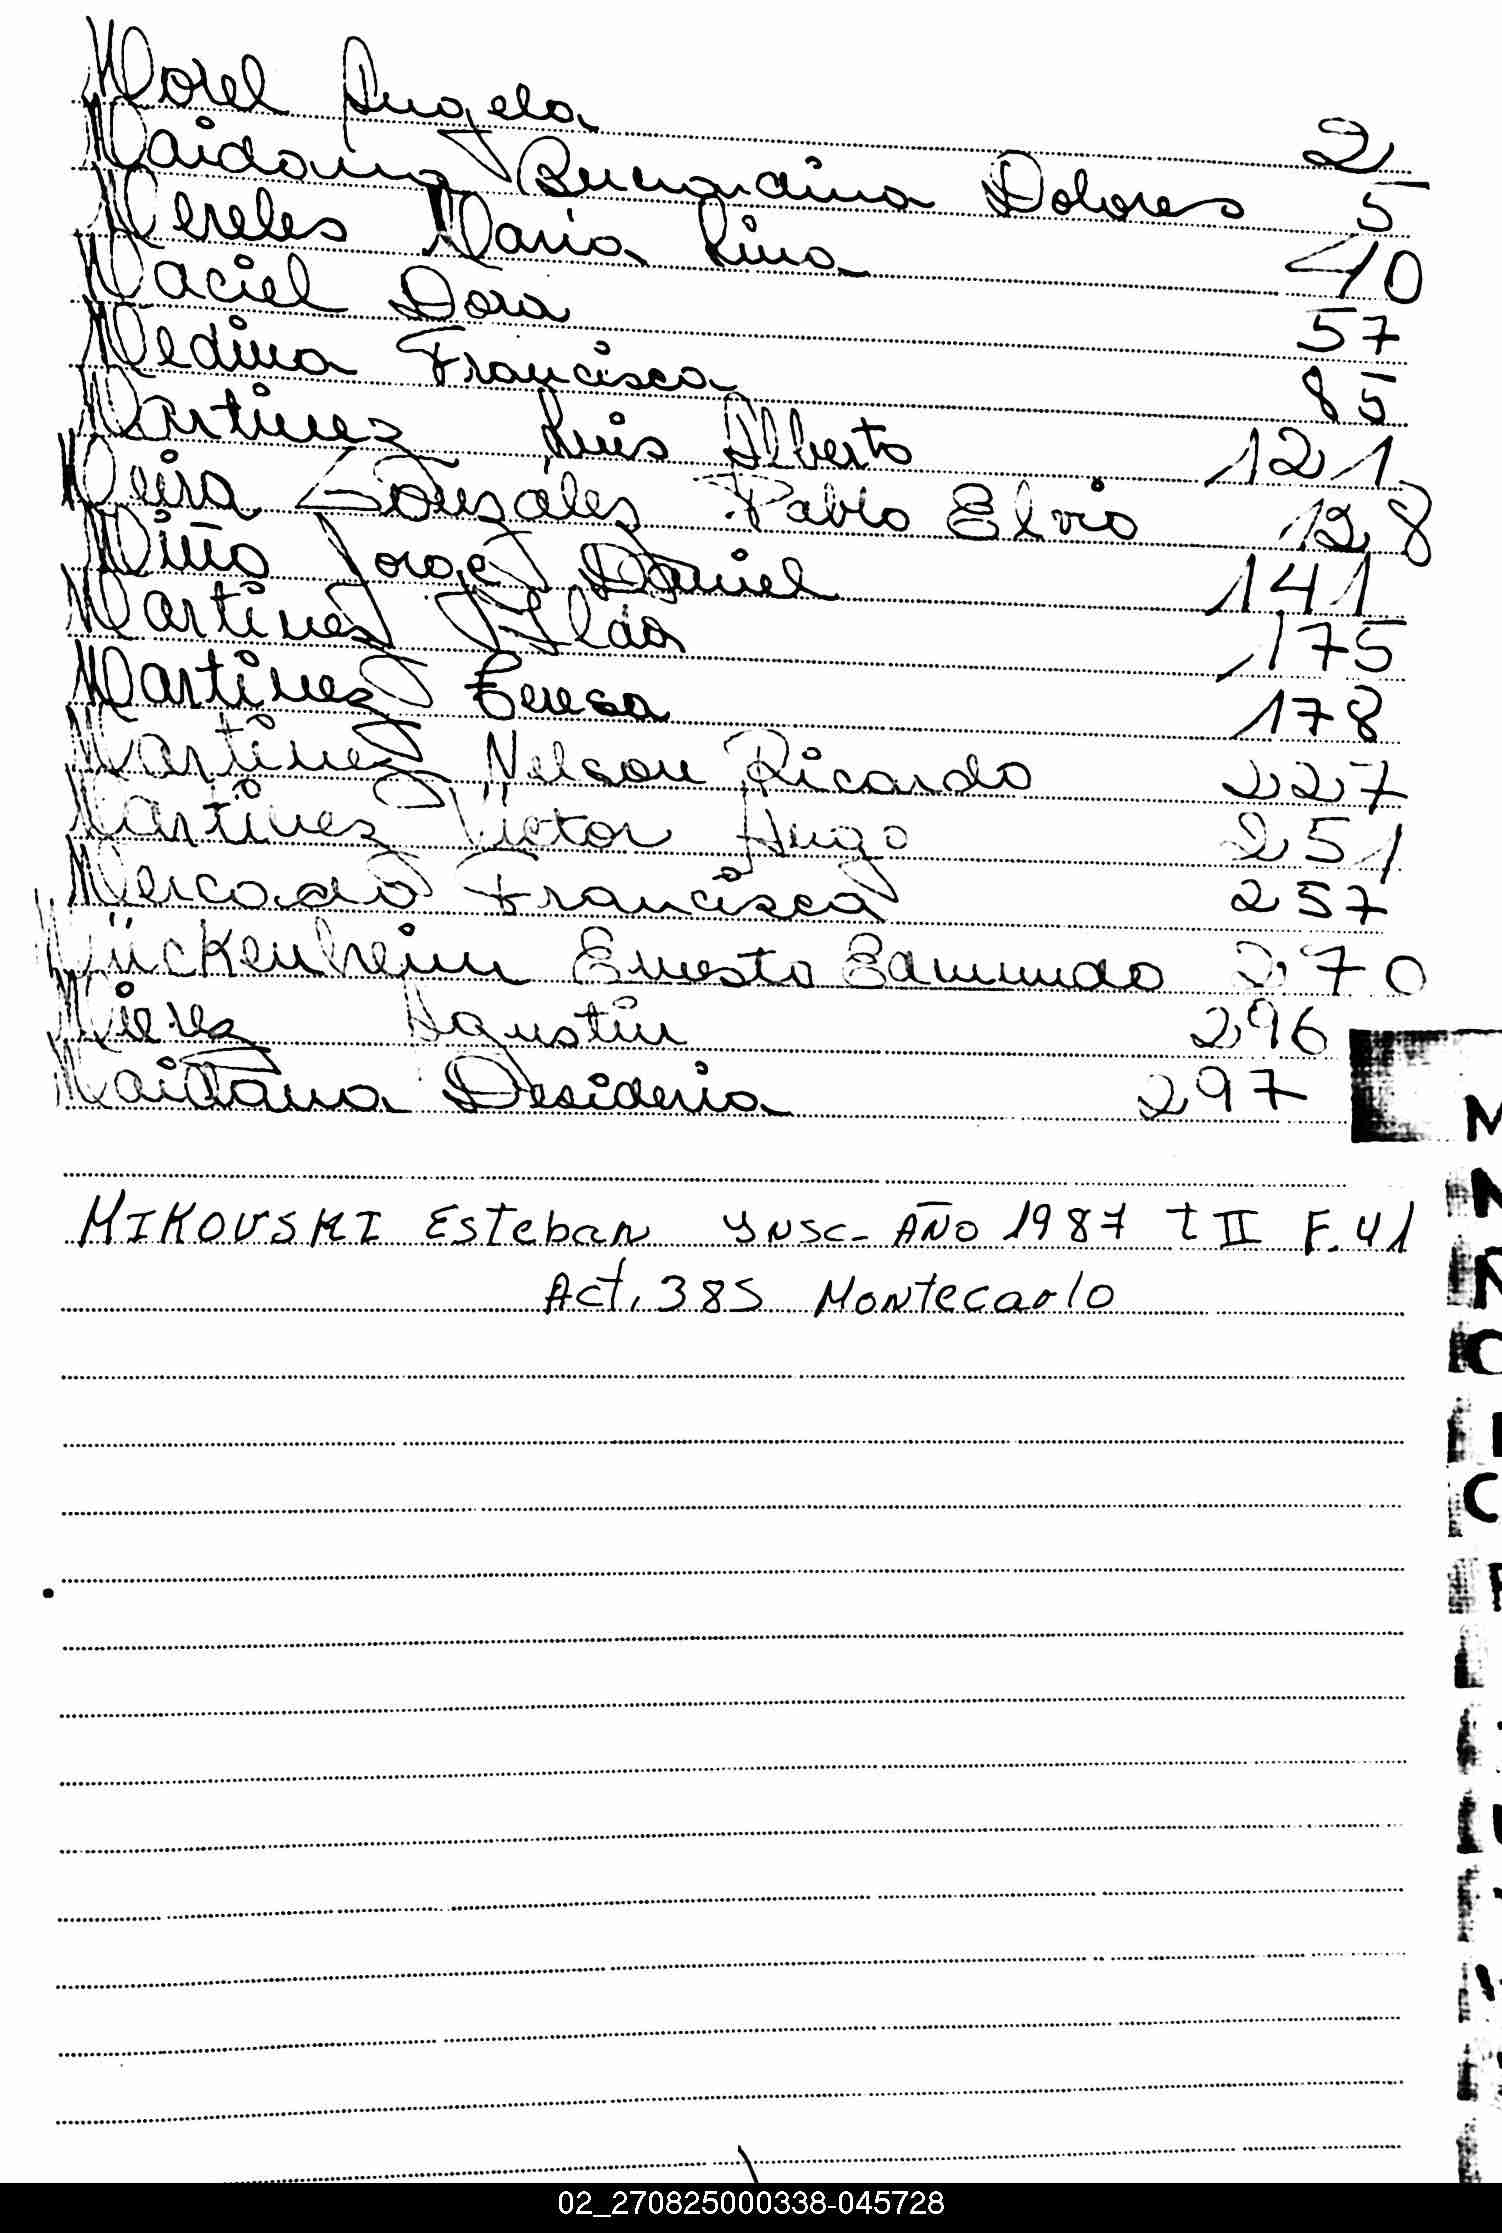 Morel Angela 2
Maidana Bernardina Dolores 5
Mereles Maria Lina 40
Maciel Dora 57
Medina Francisca 85
Martinez Luis Alberto 121
Meira Gonsáles Pablo Elvio 128
Miño Jorge Daniel 141
Martinez Ilda 175
Martinez Teresa 178
Martinez Nelson Ricardo 227
Martinez Victor Hugo 251
Mercado Francisca 257
Mückenheim Ernesto Edmundo 270
Mierez Agustin 296
Maidana Desideria 297
MIKOVSKI Esteban YNSC- AÑO 1987 t II F. 41
Act. 385 Montecarlo
M
N
Ñ
O
02_270825000338-045728